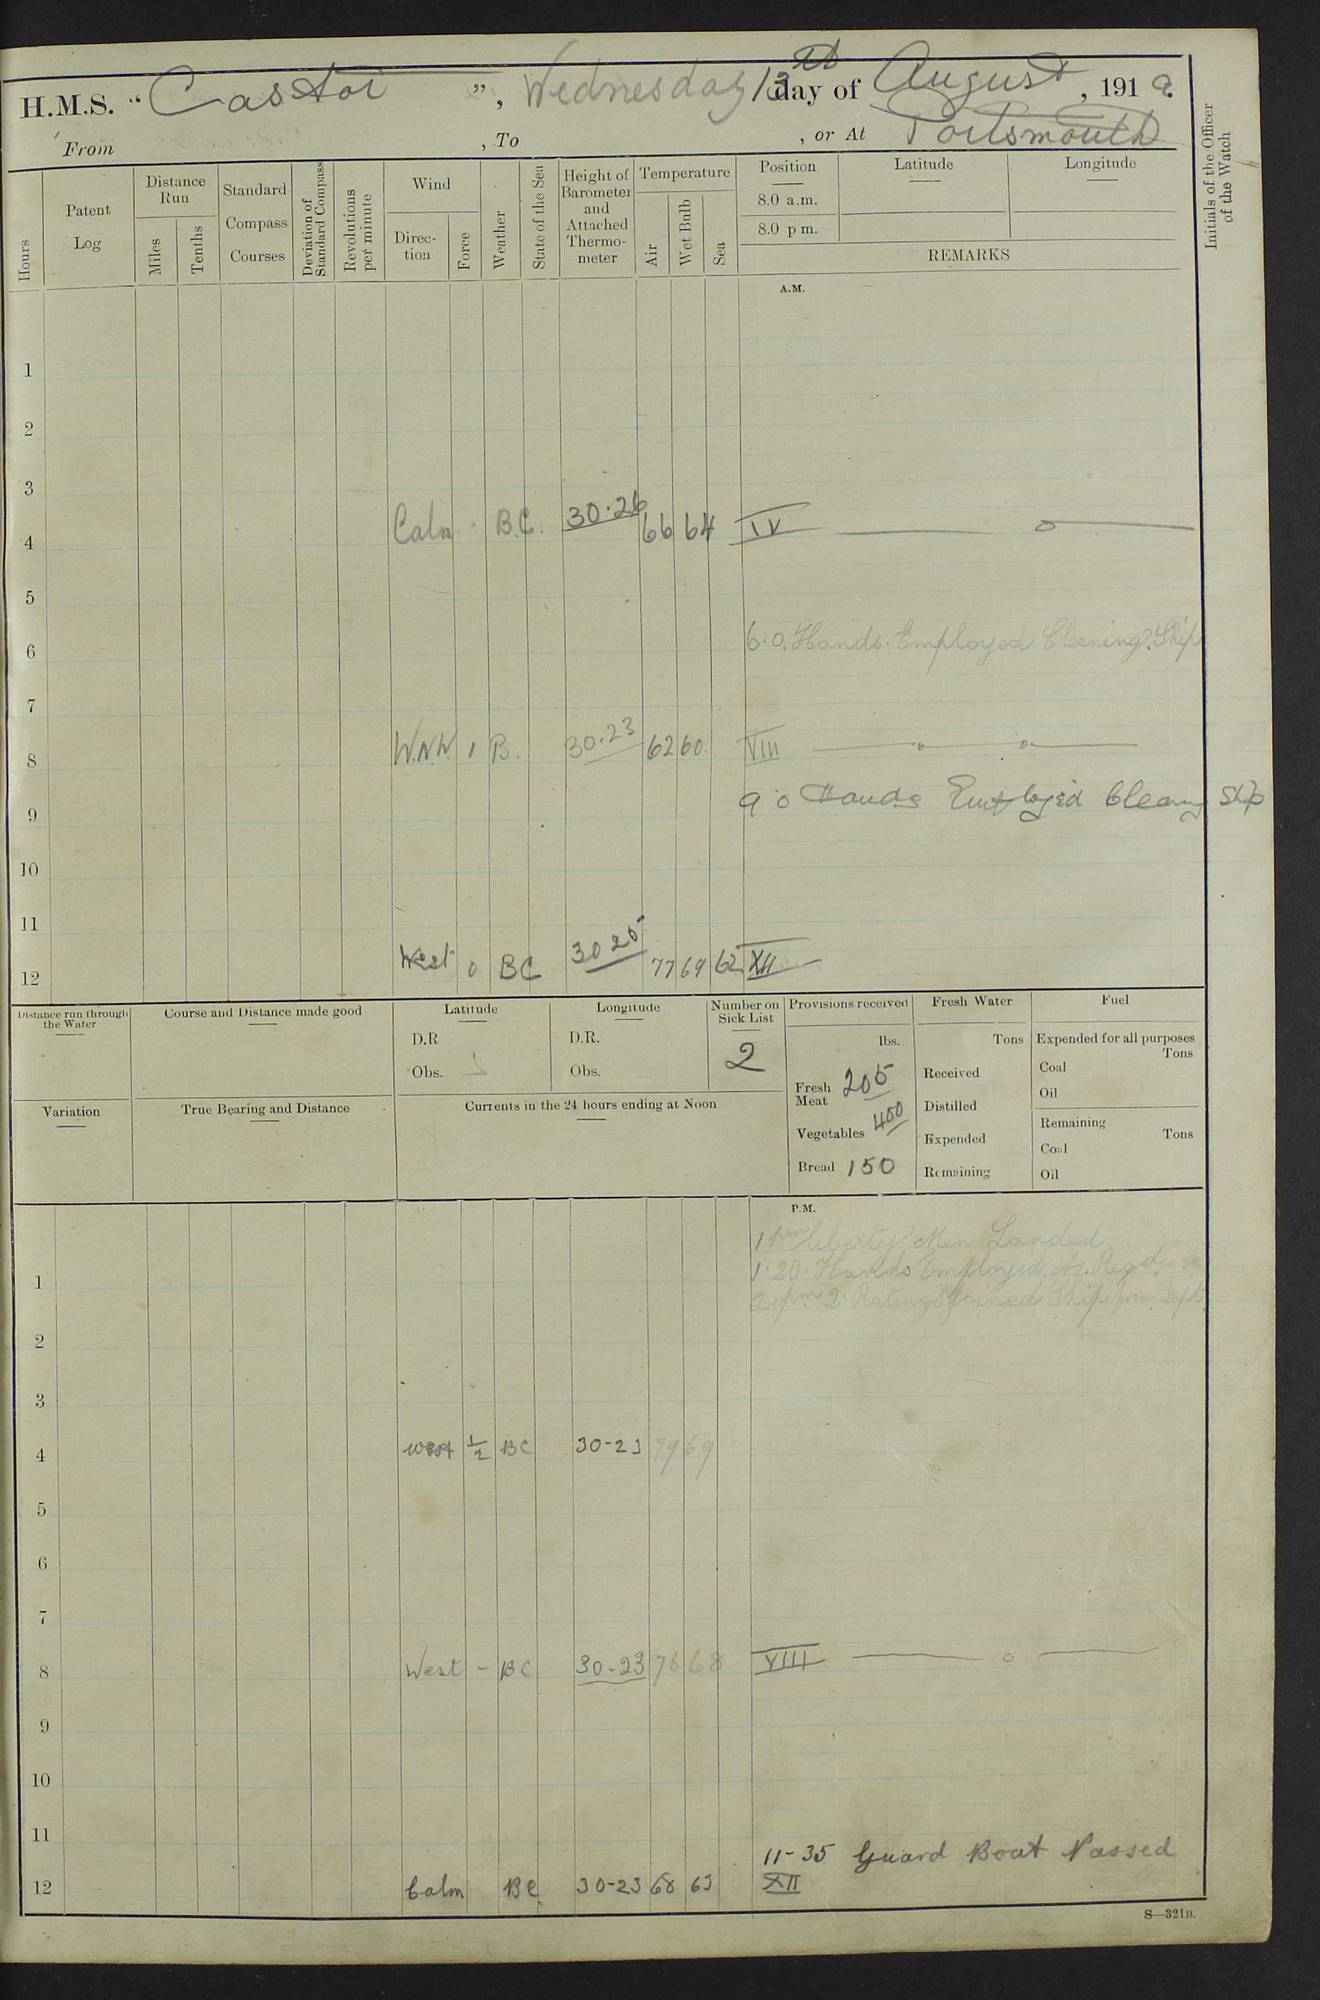 H.M.S. "Castor", Wednesday 13th day of August, 1919.
From , To , or At Portsmouth
Initials of the Officer of the Watch
Hours
Patent Log
Distance Run
Miles
Tenths
Standard Compass Courses
Deviation of Standard Compass
Revolutions per minute
Wind
Direction
Force
Weather
State of the Sea
Height of Barometer and Attached Thermometer
Temperature
Air
Wet Bulb
Sea
Position Latitude Longitude
8.0 a.m.
8.0 p m.
REMARKS
A.M.
1
2
3
4 Calm - B.C. 30.26 66 64 IV
5
6 6.0. Hands Employed Cleaning Ship
7
8 W.N.W. 1 B. 30.23 62 60 VIII
9 9.0 Hands Employed Cleaning Ship
10
11
12 West 0 BC 30 25 77 69 62 XII
Distance run through the Water
Course and Distance made good
Latitude
D.R
Obs.
Longitude
D.R.
Obs.
Number on Sick List
2
Provisions received
lbs.
Fresh Meat 205
Vegetables 450
Bread 150
Fresh Water
Tons
Received
Distilled
Expended
Remaining
Fuel
Expended for all purposes
Tons
Coal
Oil
Remaining
Tons
Coal
Oil
Variation
True Bearing and Distance
Currents in the 24 hours ending at Noon
P.M.
1 pm Liberty Men Landed
1 1.20. Hands Employed As Reqd.
2. pm 2 Ratings Joined Ship from Depot
2
3
4 West 1/2 BC 30-23 79 69
5
6
7
8 West - BC 30-23 76 68 VIII
9
10
11 11-35 Guard Boat Passed
12 Calm BC 30-23 68 63 XII
S—321B.